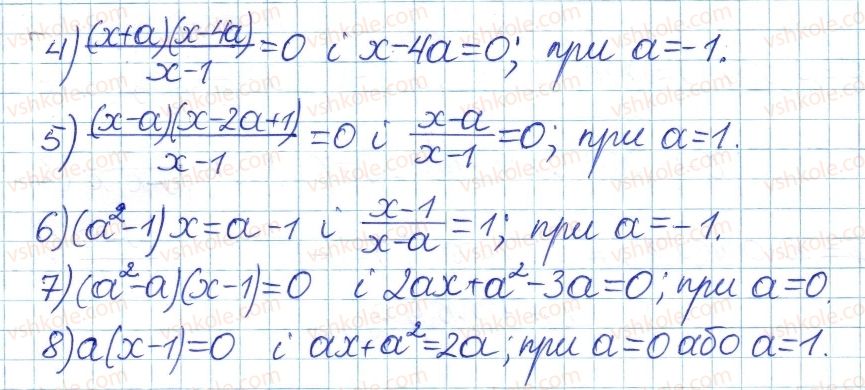 4) (x+a)(x-4a)/(x-1) = 0 і x-4a=0; при a=-1.
5) (x-a)(x-2a+1)/(x-1) = 0 і (x-a)/(x-1) = 0; при a=1.
6) (a²-1)x=a-1 і (x-1)/(x-a) = 1; при a=-1.
7) (a²-a)(x-1)=0 і 2ax+a²-3a=0; при a=0.
8) a(x-1)=0 і ax+a²=2a; при a=0 або a=1.